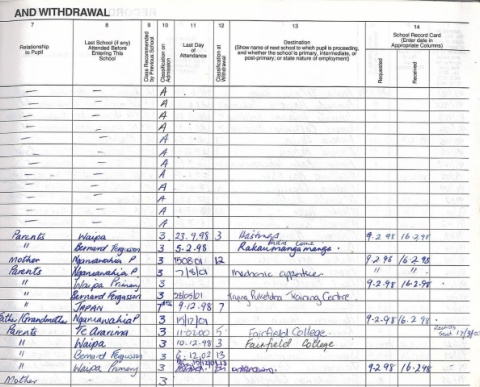 AND WITHDRAWAL
7 8 9 10 11 12 13 14
Relationship to Pupil
Last School (if any) Attended Before Entering This School
Class Recommended by Previous School
Classification on Admission
Last Day of Attendance
Classification at Withdrawal
Destination (Show name of next school to which pupil is proceeding, and whether the school is primary, intermediate, or post-primary; or state nature of employment)
School Record Card (Enter date in Appropriate Columns)
Requested
Received
— — A
— — A
— — A
— — A
— — A
— — A
— — A
— — A
— — A
— — A
— — A
— — A
Parents Waipa 3 23.9.98 3 Hastings 9.2.98 16.2.98
" Bernard Fergusson 3 5.2.98 Rakaumangamanga.
Mother Ngaruawahia P 3 1508 01 12 9.2.98 16.2.98
Parents Ngaruawahia P 3 7/8/01 mechanic apprentice " "
" Waipa Primary 3 9.2.98 16.2.98
" Bernard Fergusson 3 28/05/01 Training Centre.
" JAPAN 9.12.98 7
Ngaruawahia P 3 14/12/01 9.2.98 16.2.98
Parents 3 5 Fairfield College.
" Waipa 3 10.12.98 3 Fairfield College
" Bernard Fergusson 3 6.12.02 13
" Waipa Primary 3 13 unknown. 9.2.98 16.2.98
Mother — 3